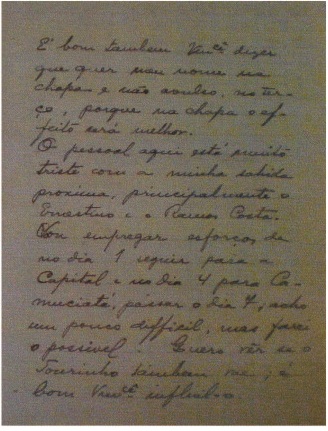 E' bom tambem Vmcê dizer
que quer meu nome na
chapa e não avulso, no ter-
ço, porque na chapa o ef-
feito será melhor.
O pessoal aqui está muito
triste com a minha sahida
proxima, principalmente o
Ernestino e o Ramos Costa.
Vou empregar esforços de
no dia 1 seguir para a
Capital e no dia 4 para Ca-
muciatá, passar o dia 7; acho
um pouco difficil, mas farei
o possivel. Quero vêr se o
Tourinho tambem vae; é
bom Vmcê influil-o.